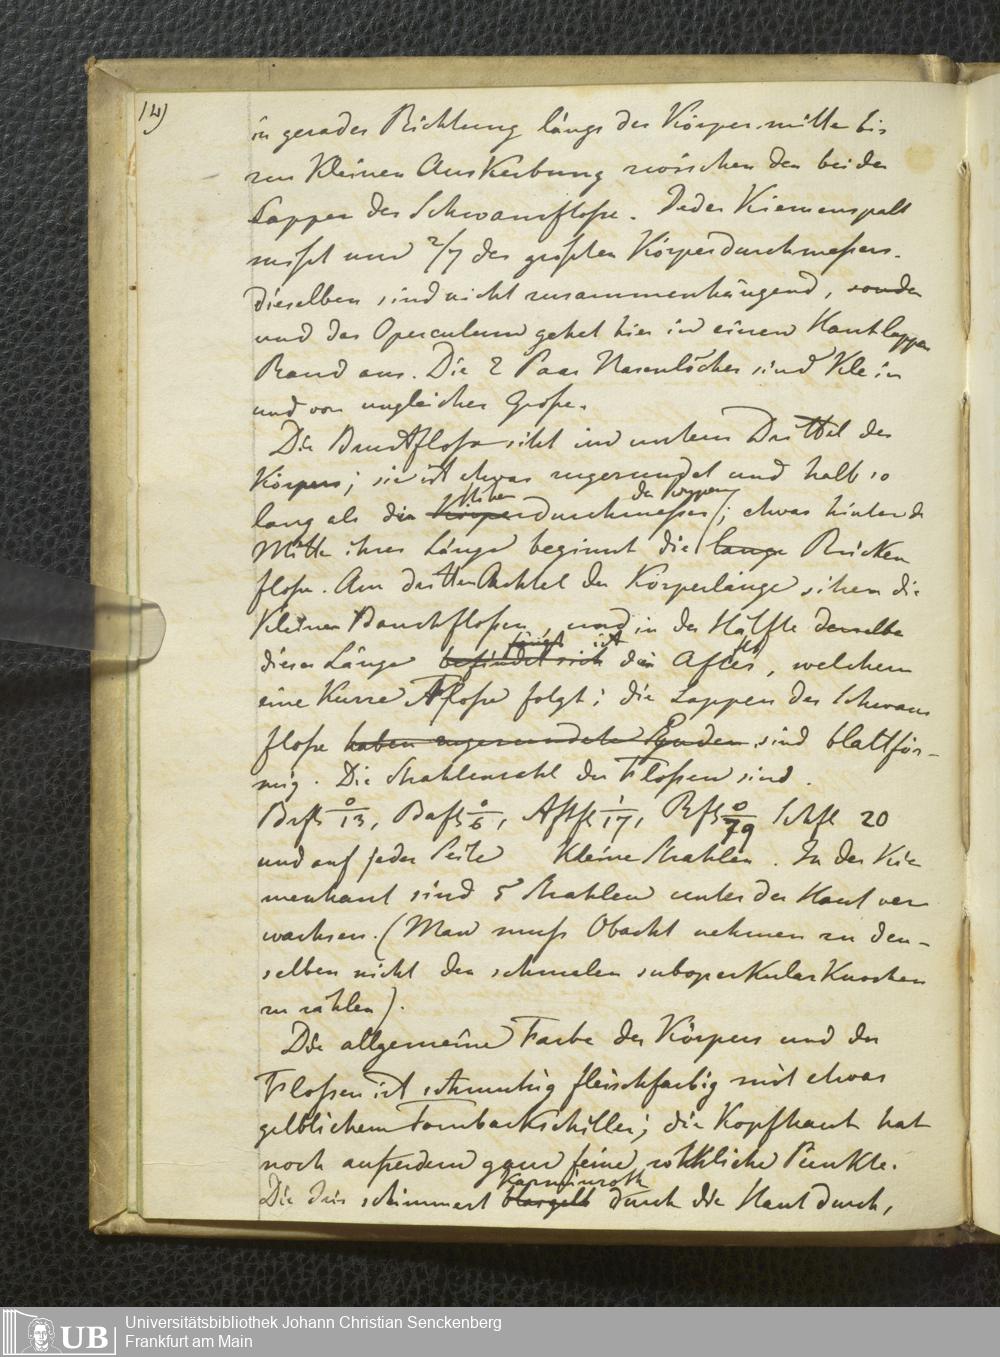 14)
in gerader Richtung längs der Körpermitte bis
zur Kleinen AusKerbung zwischen den beiden
Lappen der Schwanzfloße. Jeder Kiemenspalt
mißt nur 2/7 des größten Körperdurchmeßers.
dieselben sind nicht zusammenhängend, sonder
und das Operculum gehet hier in einen Hautlappen
Rand aus. Die 2 Paar Nasenlöcher sind Klein
und von ungleicher Große.
Die Brustfloße sitzt im untern Drittel des
Körpers; sie ist etwas zugerundet und halb so
lang als der Körperdurchmeßer; etwas hinter der
Mitte ihrer Länge beginnt die lange Rücken
floße. Am dritten Achtel der Körperlänge sitzen die
Kleinen Bauchfloßen, und in der Hälfte derselbe
dieser Länge befindet sich der After, welchem
eine Kurze Afloße folgt; die Lappen der Schwanz
floße haben zugerundete Enden sind blattför-
mig. Die Strahlenzahl der Floßen sind.
Brfl 0/13, Bafl 0/6, Aftfl 1/17, Rfl 0/79 Schfl 20
und auf jeder Seite Kleine Strahlen. In der Kie
menhaut sind 5 Strahlen unter der Haut ver
wachsen. (Man muß Obacht nehmen zu den-
selben nicht den schmalen suboperKular Knochen
zu zählen).
Die allgemeine Farbe des Körpers und der
Floßen ist schmutzig fleischfarbig mit etwas
gelblichem Tombackschiller; die Kopfhaut hat
noch außerdem ganz feine röthliche PunKte.
Karminroth
Die Iris schimmert blasgelb durch die Haut durch,
UB
Universitätsbibliothek Johann Christian Senckenberg
Frankfurt am Main